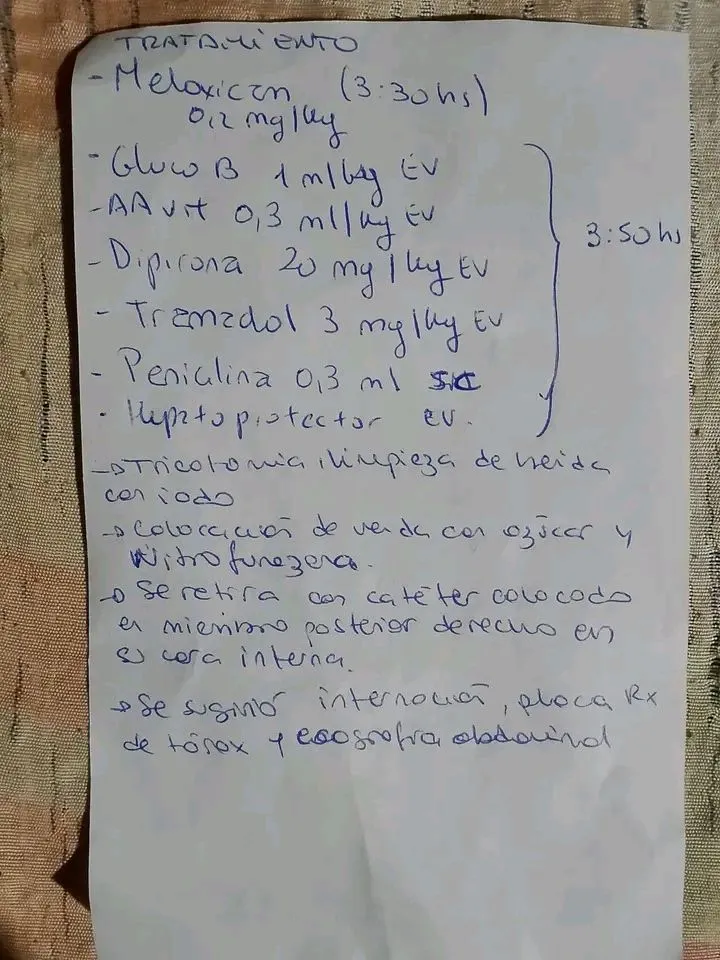 TRATAMIENTO
- Meloxican (3:30 hs)
0,2 mg/kg
- Gluco B 1 ml/kg EV
- AA vit 0,3 ml/kg EV
- Dipirona 20 mg/kg EV
3:50 hs
- Tramadol 3 mg/kg EV
- Penicilina 0,3 ml SC
- Hepatoprotector EV.
→ Tricotomia, limpieza de herida
con iodo
→ Colocación de venda con azúcar y
Nitrofurazona.
→ Se retira con catéter colocado
en miembro posterior derecho en
su cara interna.
→ Se sugirió internación, placa Rx
de tórax y ecografia abdominal